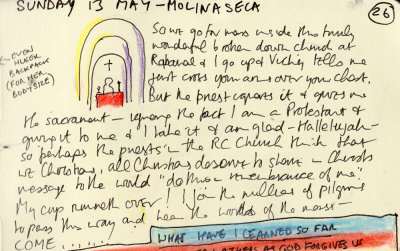 SUNDAY 13 MAY - MOLINASECA
26
EVEN
HUGER
BACKPACK
(FOR HER
BODYSIZE)
So we go for mass inside this truly
wonderful broken down church at
Rabanal & I go up & Vicky tells me
just cross your arms over your chest.
But the priest ignores it & gives me
the sacrament - ignoring the fact I am a Protestant &
giving it to me & I take it & am glad - Hallelujah -
so perhaps the priests in the RC Church think that
we Christians, all Christians deserve to share in Christ's
message to the world "do this in remembrance of me"
My cup runneth over! I join the millions of pilgrims
to pass this way and hear the words of the mass -
COME ......
WHAT HAVE I LEARNED SO FAR
OTHERS AS GOD FORGIVES US